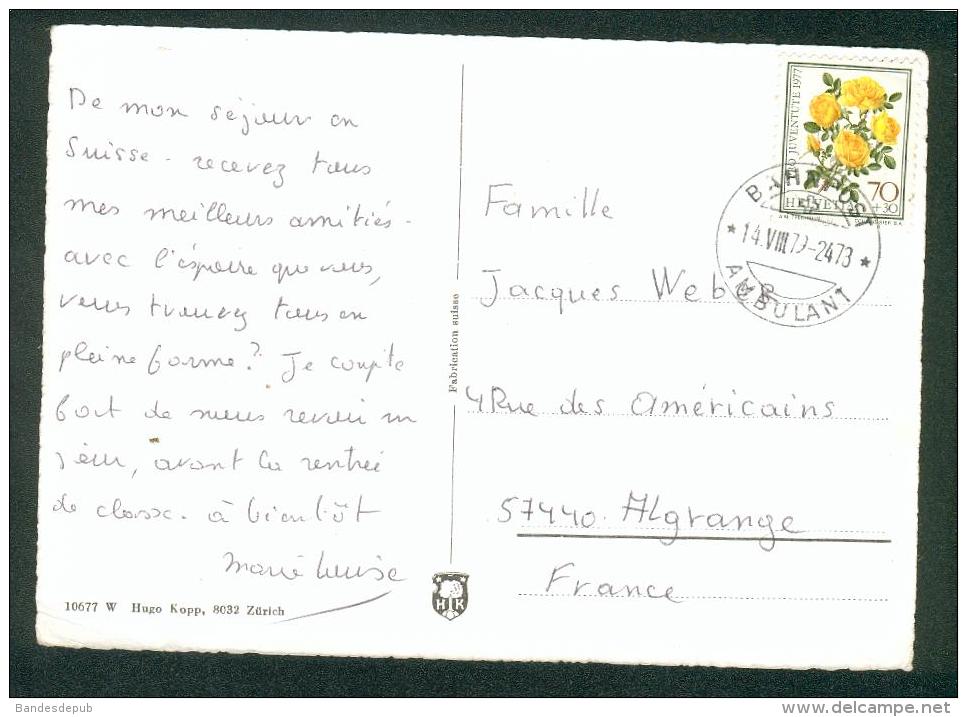 De mon séjour en
Suisse - recevez tous
mes meilleurs amitiés -
avec l'espoire que vous,
vous trouvez tous en
pleine forme? Je compte
fort de nous revoir un
jour, avant la rentrée
de classe. à bientôt
Marie Louise
10677 W Hugo Kopp, 8032 Zürich
HK
Fabrication suisse
PRO JUVENTUTE 1977
70
+30
HELVETIA
BAHNPOST
* 14.VIII.79-2473 *
AMBULANT
Famille
Jacques Weber
4 Rue des Américains
57440. Algrange
France
Bandesdepub
www.delcampe.net